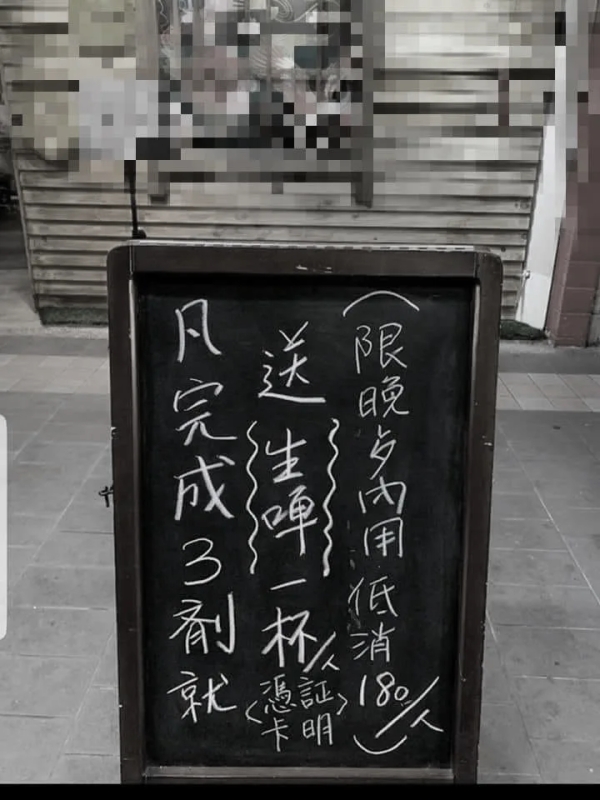 凡完成3剤就
送生啤一杯/人〈憑卡証明〉
(限晚歺內用,低消180/人)